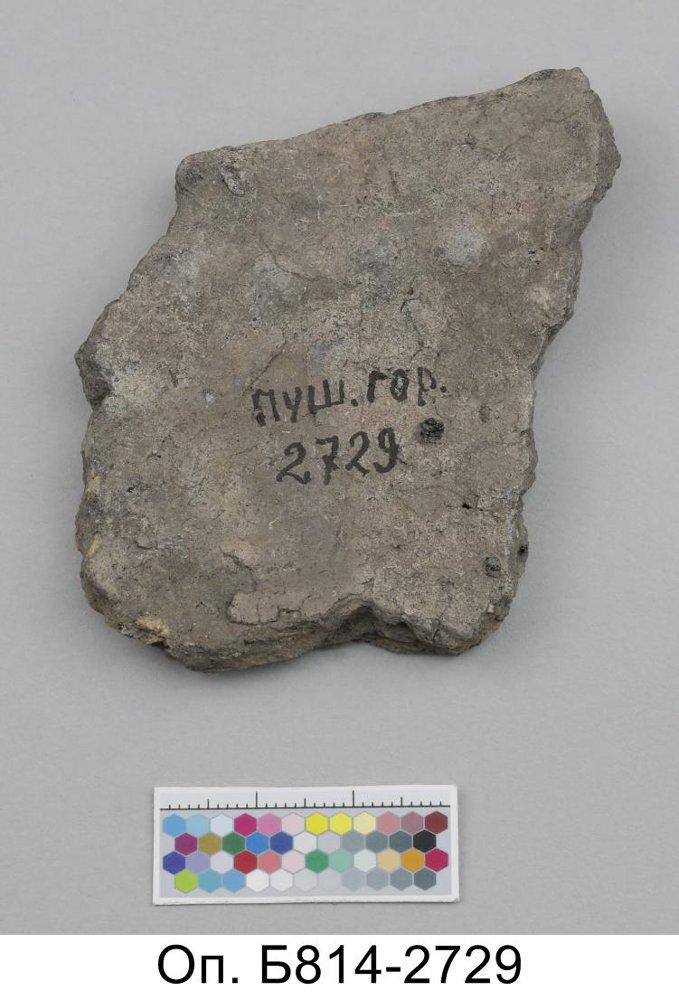 ПУШ.ГОР.
2729
Оп. Б814-2729